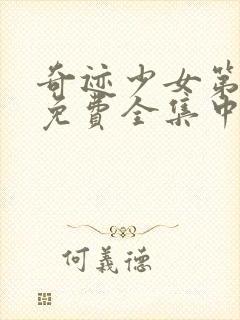 奇迹少女第
免費全集中
何義德